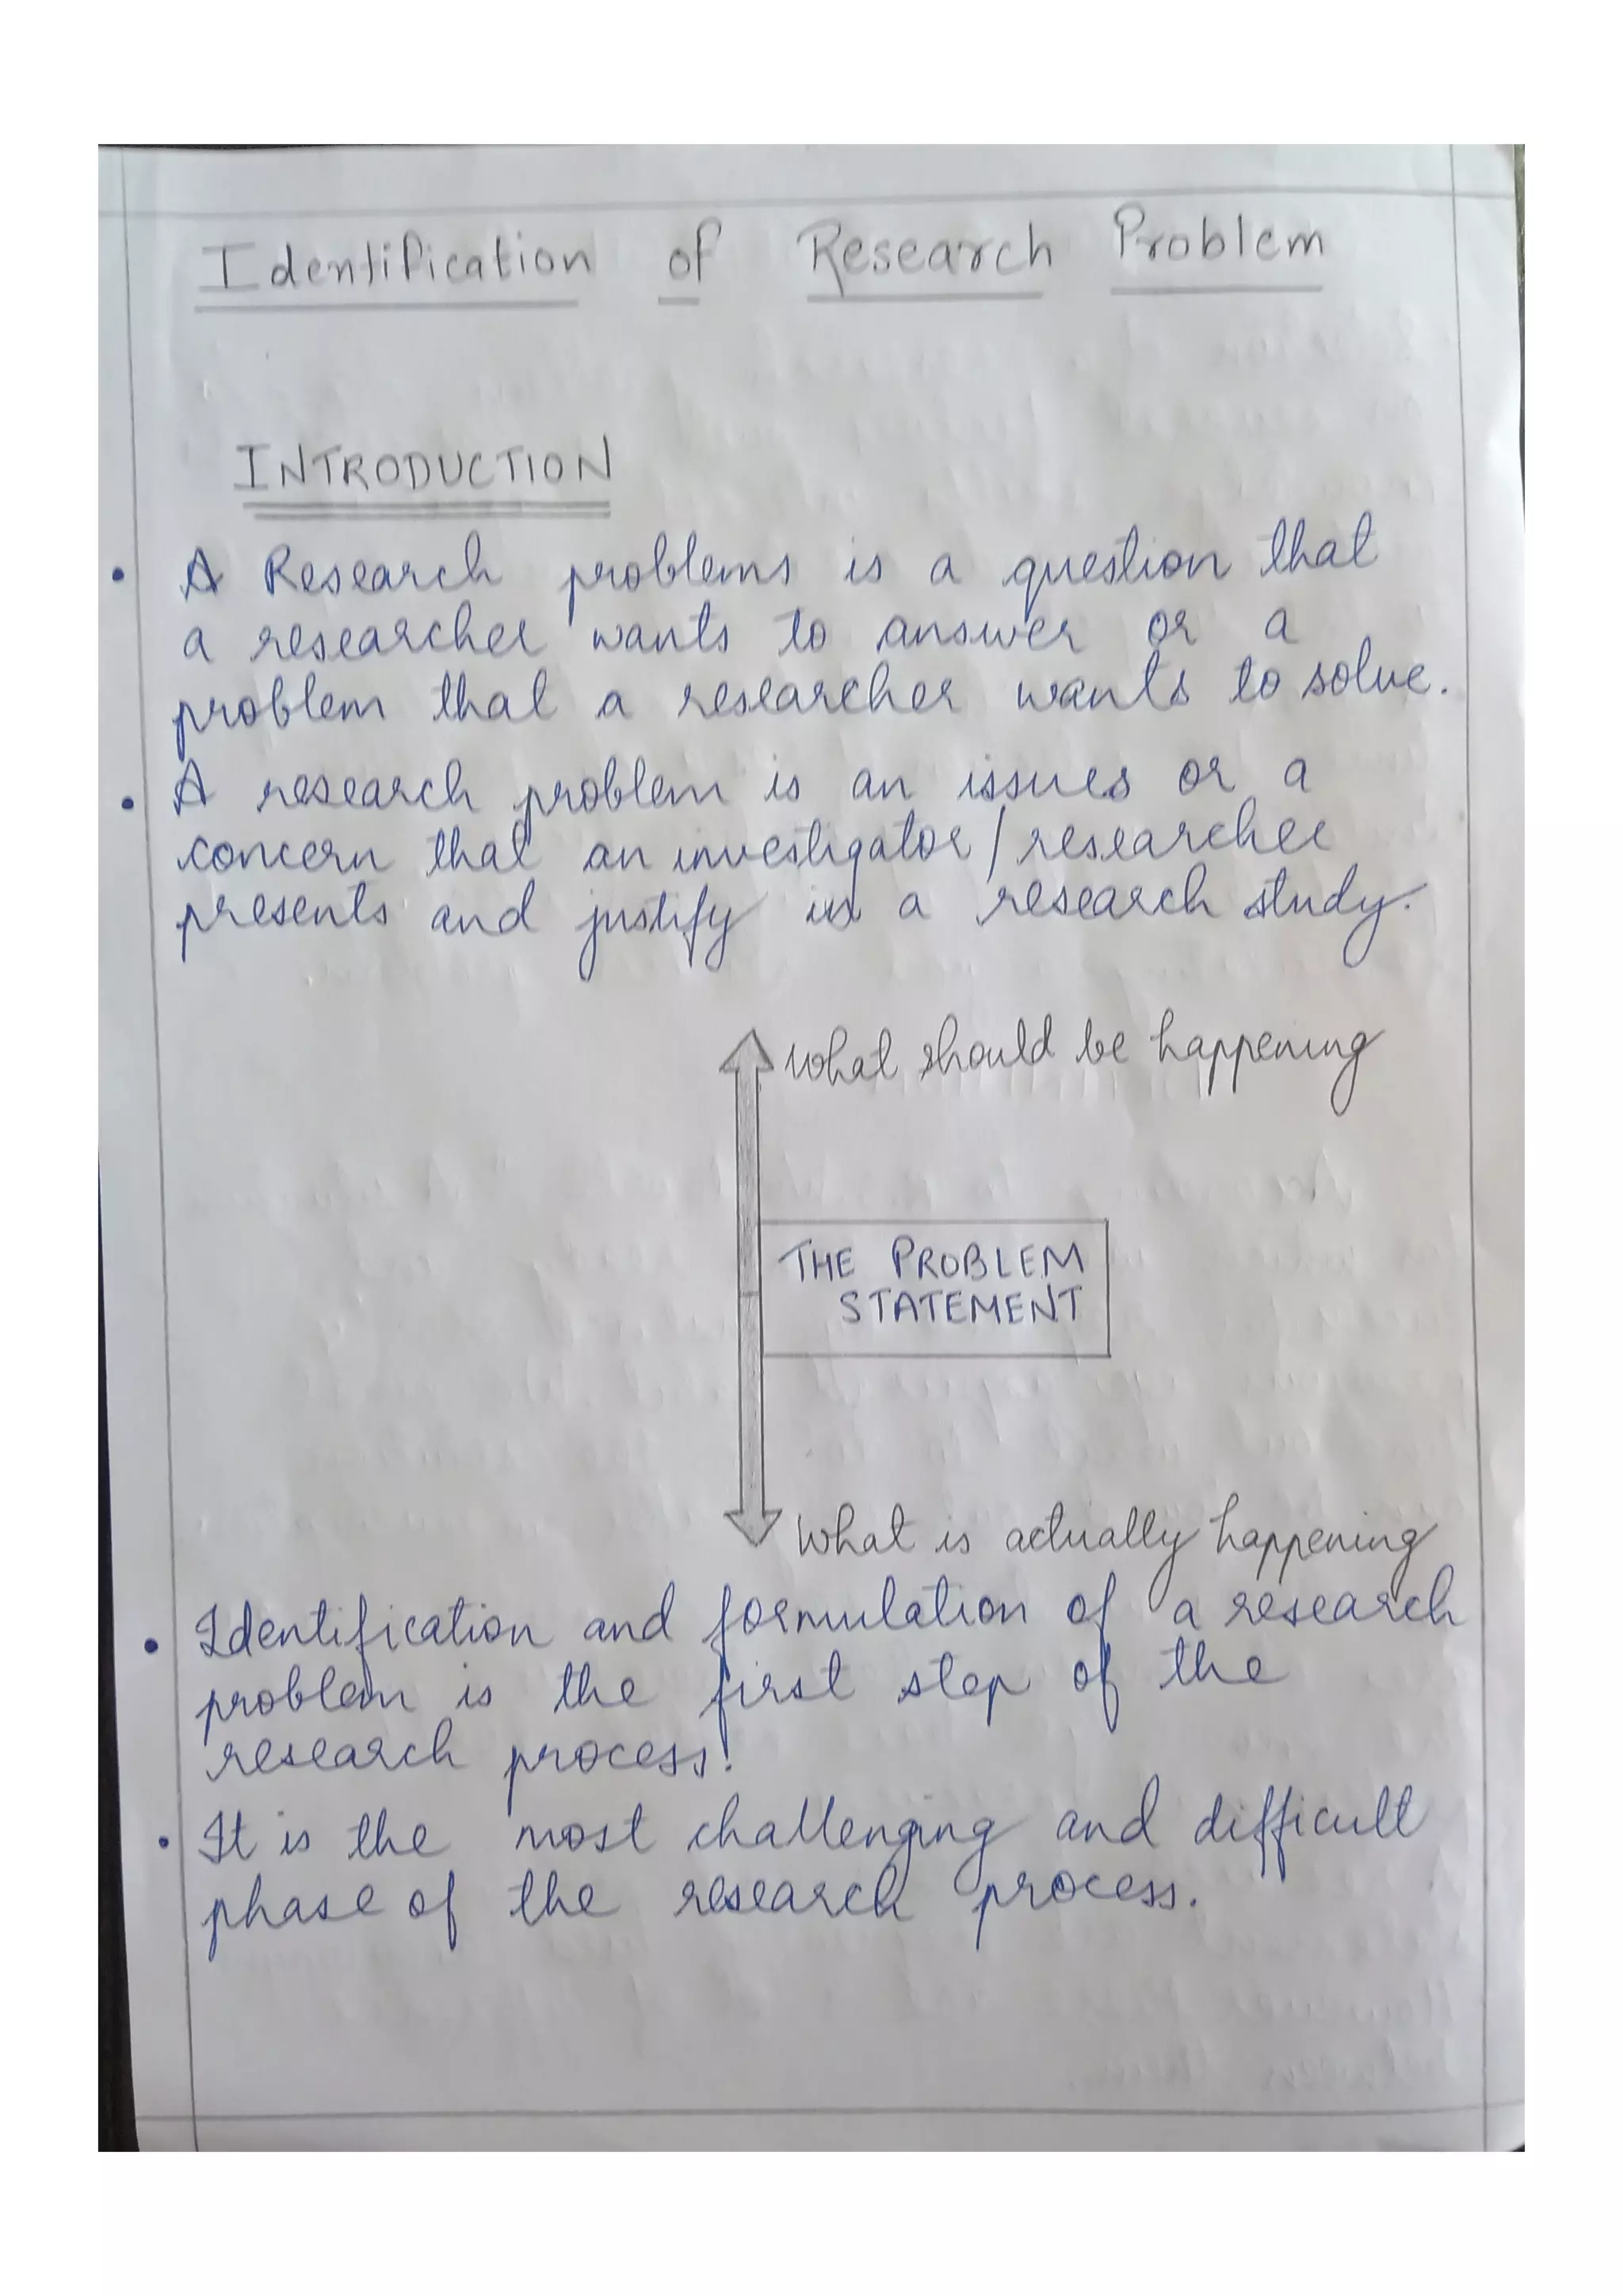 Identification of Research Problem
INTRODUCTION
• A Research problems is a question that
a researcher wants to answer or a
problem that a researcher wants to solve.
• A research problem is an issues or a
concern that an investigator/researcher
presents and justify in a research study.
What should be happening
THE PROBLEM
STATEMENT
What is actually happening
• Identification and formulation of a research
problem is the first step of the
research process.
• It is the most challenging and difficult
phase of the research process.